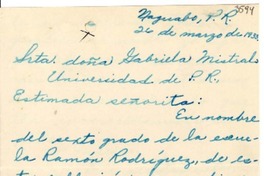 Naguabo, P.R.
26 de marzo de 1933
Srta. doña Gabriela Mistral
Universidad de P.R.
Estimada señorita:
En nombre
del sexto grado de la escue-
la Ramón Rodríguez, de es-